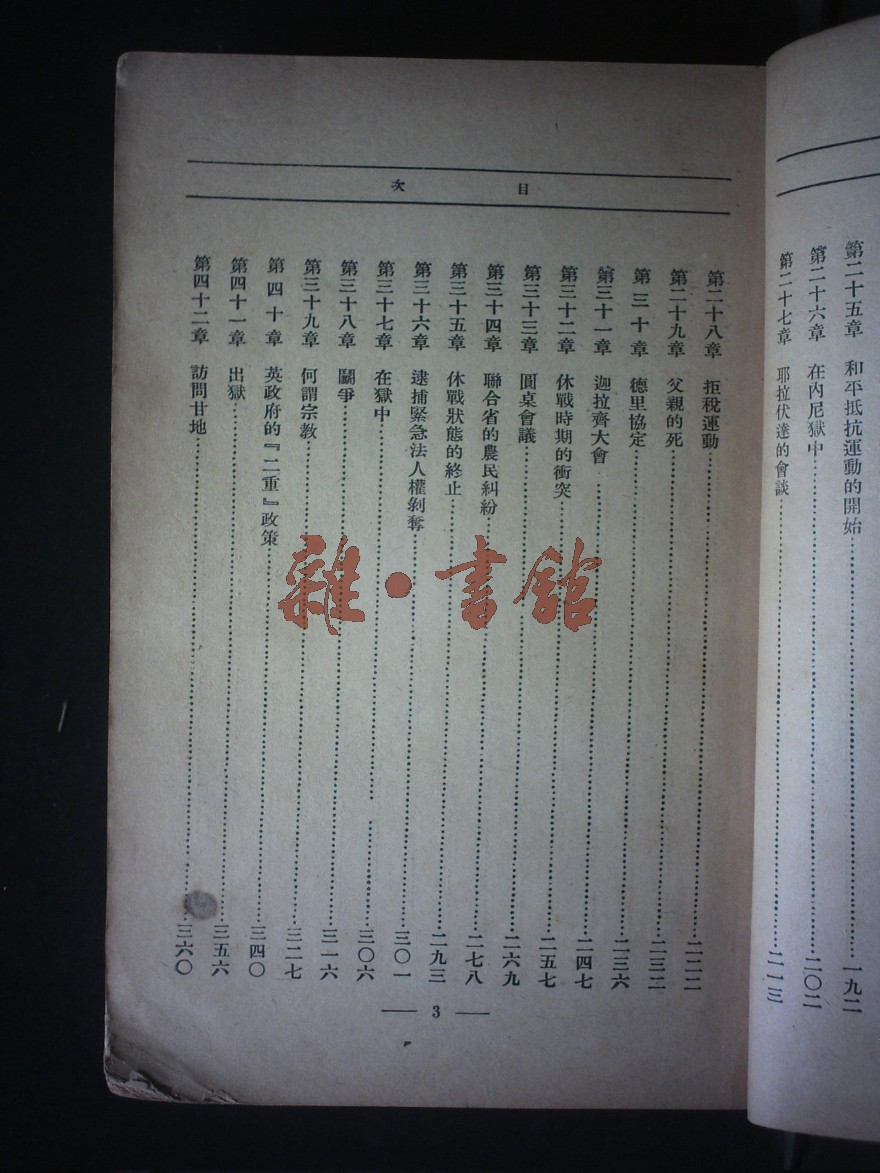 第二十五章　和平抵抗運動的開始……一九二
第二十六章　在內尼獄中……二〇二
第二十七章　耶拉伏達的會談……二一三
目次
第二十八章　拒稅運動……二二二
第二十九章　父親的死……二三二
第三十章　德里協定……二三六
第三十一章　迦拉齊大會……二四七
第三十二章　休戰時期的衝突……二五七
第三十三章　圓桌會議……二六九
第三十四章　聯合省的農民糾紛……二七八
第三十五章　休戰狀態的終止……二九三
第三十六章　逮捕緊急法人權剝奪……三〇一
第三十七章　在獄中……三〇六
第三十八章　鬪爭……三一六
第三十九章　何謂宗教……三二七
第四十章　英政府的『二重』政策……三四〇
第四十一章　出獄……三五六
第四十二章　訪問甘地……三六〇
— 3 —
雜·書館